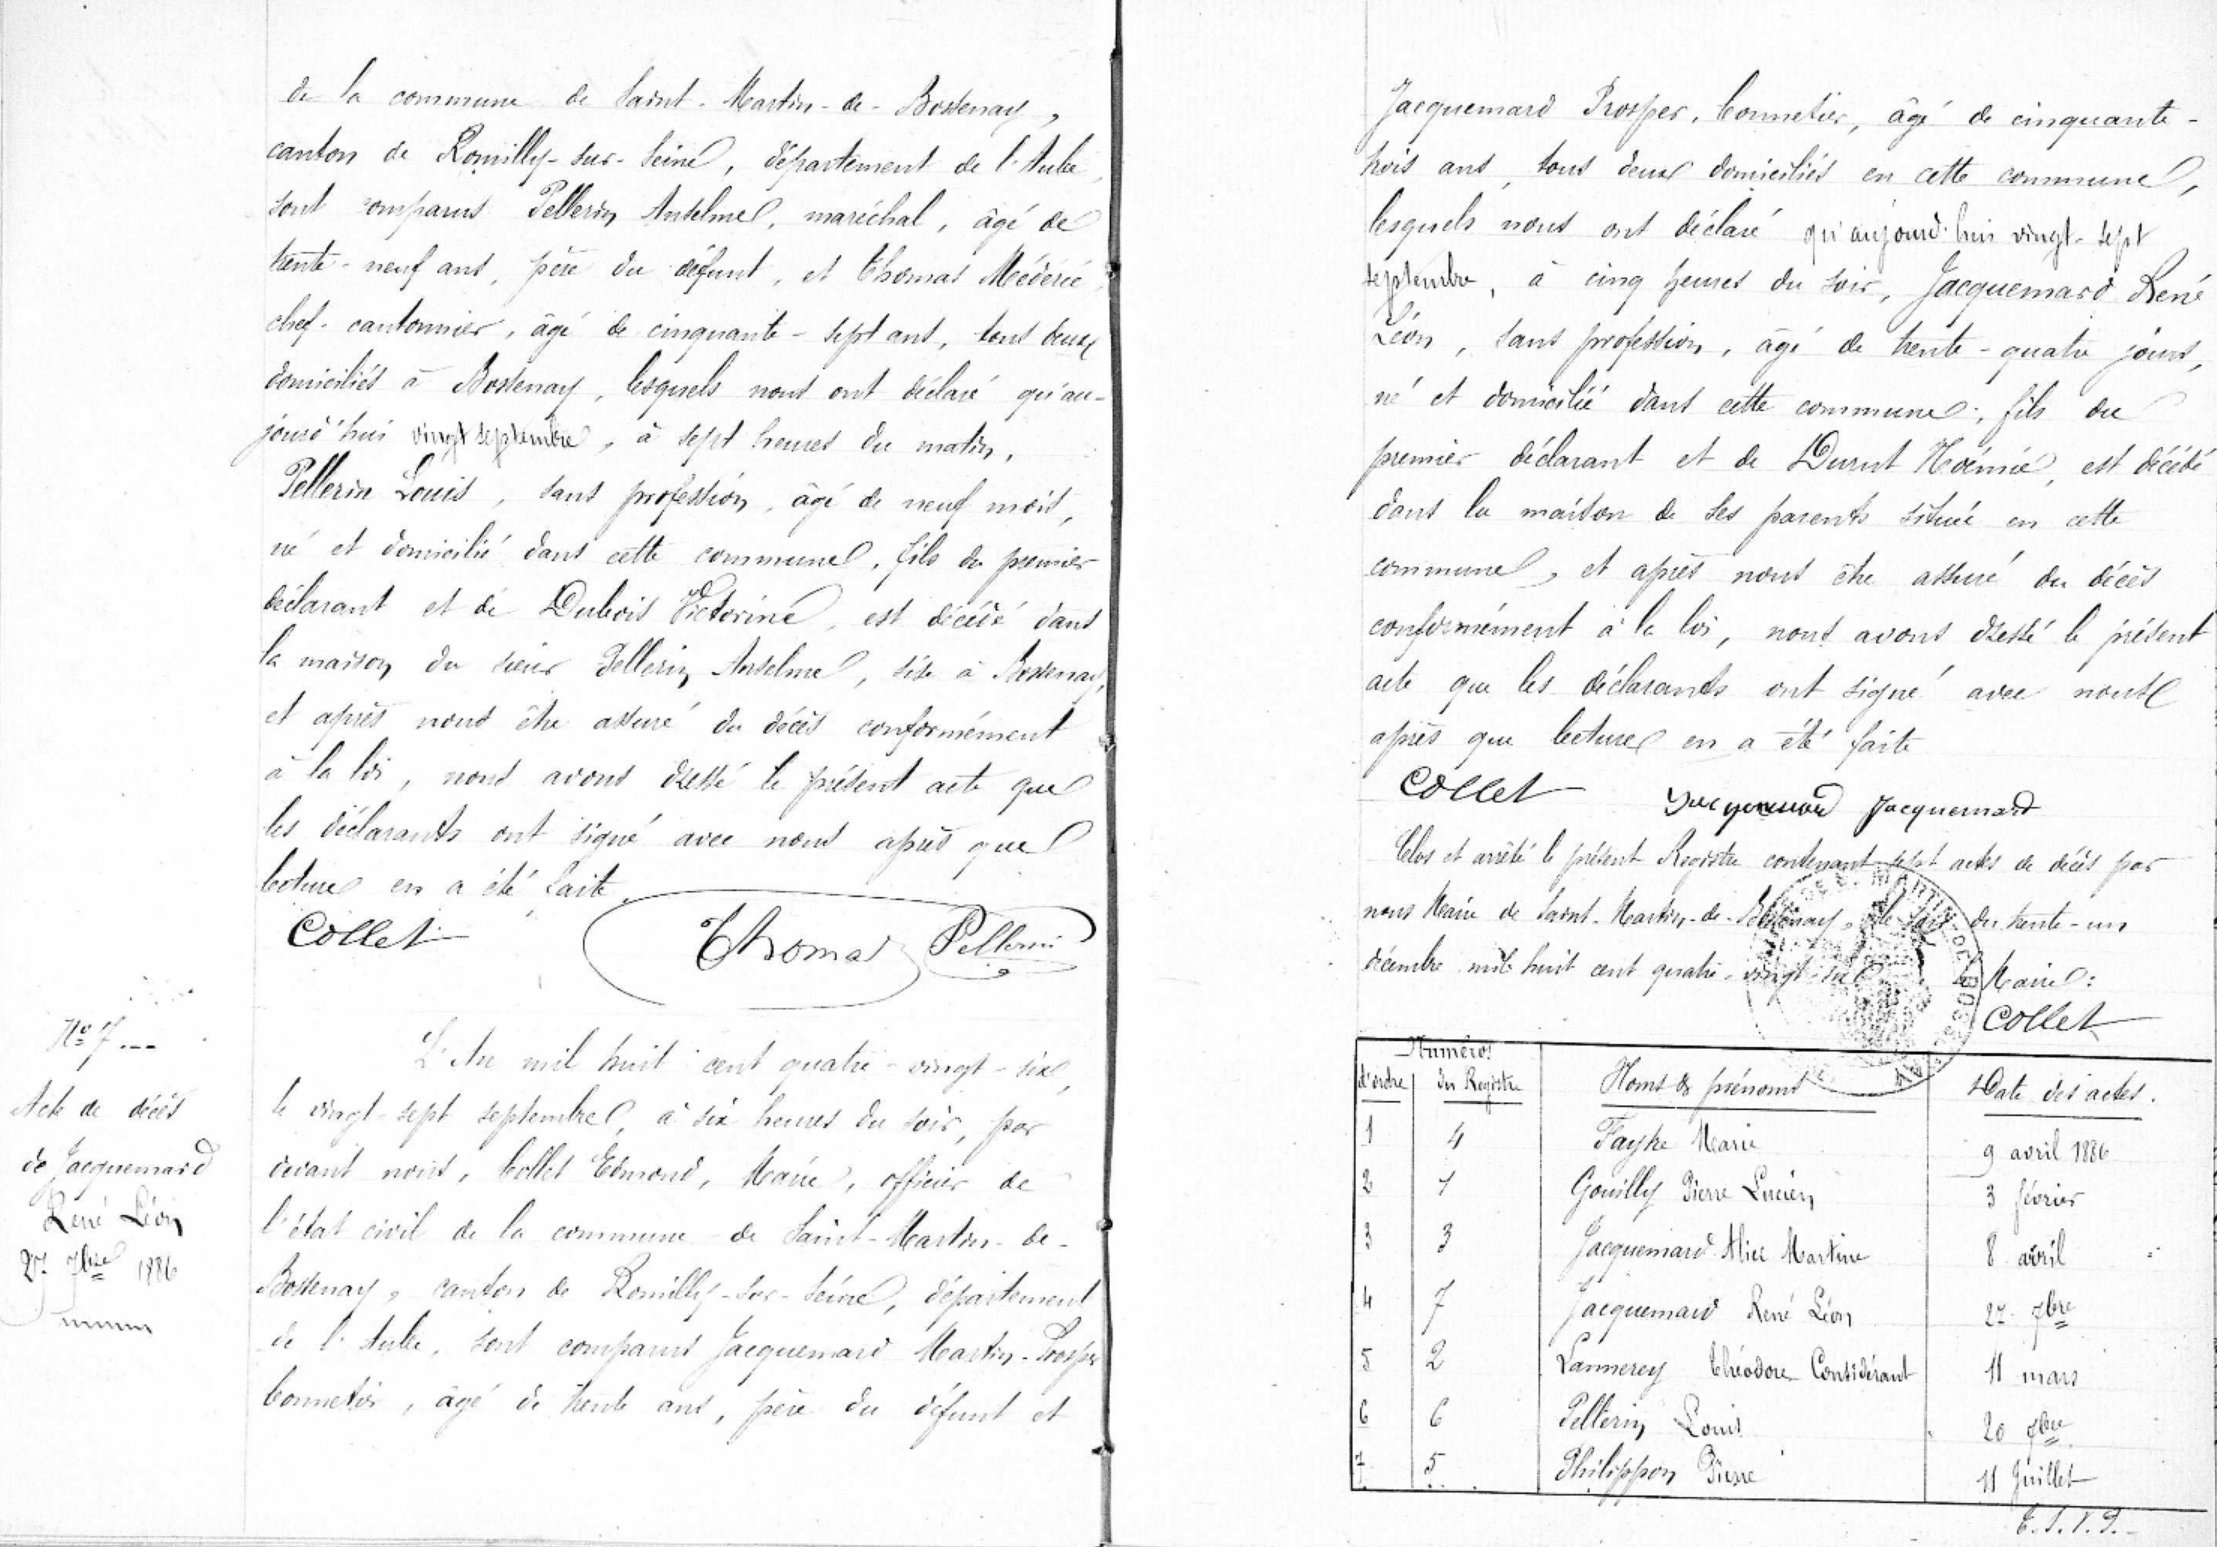 de la commune de Saint-Martin-de-Bossenay,
canton de Romilly-sur-Seine, département de l'Aube,
sont comparus Pellerin Anselme, maréchal, âgé de
trente-neuf ans, père du défunt, et Thomas Médéric,
chef-cantonnier, âgé de cinquante-sept ans, tous deux
domiciliés à Bossenay, lesquels nous ont déclaré qu'au-
jourd'hui vingt septembre, à sept heures du matin,
Pellerin Louis, sans profession, âgé de neuf mois,
né et domicilié dans cette commune, fils du premier
déclarant et de Dubois Victorine, est décédé dans
la maison du sieur Pellerin Anselme, sise à Bossenay,
et après nous être assuré du décès conformément
à la loi, nous avons dressé le présent acte que
les déclarants ont signé avec nous après que
lecture en a été faite.
Collet Thomas Pellerin
No 7
Acte de décès
de Jacquemard
René Léon
27 7bre 1886
L'An mil huit cent quatre-vingt-six,
le vingt-sept septembre, à six heures du soir, par
devant nous, Collet Edmond, Maire, officier de
l'état civil de la commune de Saint-Martin-de-
Bossenay, canton de Romilly-sur-Seine, département
de l'Aube, sont comparus Jacquemard Martin-Prosper
bonnetier, âgé de trente ans, père du défunt et
Jacquemard Prosper, bonnetier, âgé de cinquante-
trois ans, tous deux domiciliés en cette commune,
lesquels nous ont déclaré qu'aujourd'hui vingt-sept
septembre, à cinq heures du soir, Jacquemard René
Léon, sans profession, âgé de trente-quatre jours,
né et domicilié dans cette commune, fils du
premier déclarant et de Durut Noémie, est décédé
dans la maison de ses parents située en cette
commune, et après nous être assuré du décès
conformément à la loi, nous avons dressé le présent
acte que les déclarants ont signé avec nous
après que lecture en a été faite
Collet Jacquemard Jacquemard
Clos et arrêté le présent Registre contenant sept actes de décès par
nous Maire de Saint-Martin-de-Bossenay, le soir du trente-un
décembre mil huit cent quatre-vingt-six. Le Maire:
Collet
Numéros
d'ordre du Registre Noms & prénoms Date des actes.
1 4 Fayke Marie 9 avril 1886
2 1 Gouilly Pierre Lucien 3 février
3 3 Jacquemard Alice Martine 8 avril
4 7 Jacquemard René Léon 27 7bre
5 2 Lannerey Théodore Considérant 11 mars
6 6 Pellerin Louis 20 7bre
7 5 Philippon Pierre 11 Juillet